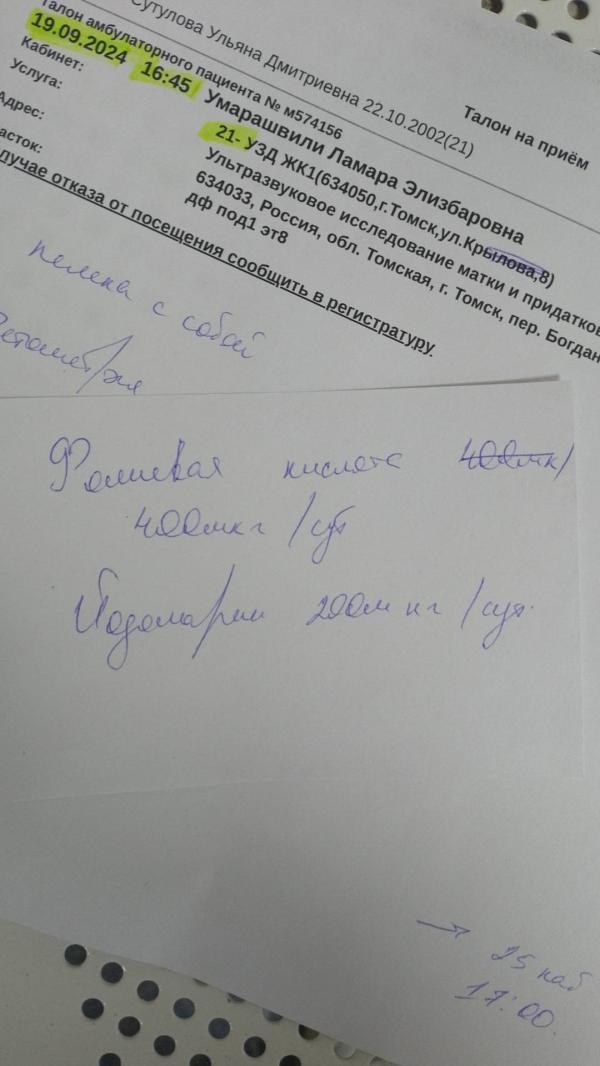 Сутулова Ульяна Дмитриевна 22.10.2002(21)
Талон на приём
Талон амбулаторного пациента № м574156
19.09.2024 16:45 Умарашвили Ламара Элизбаровна
Кабинет: 21- УЗД ЖК1(634050,г.Томск,ул.Крылова,8)
Услуга: Ультразвуковое исследование матки и придатков
Адрес: 634033, Россия, обл. Томская, г. Томск, пер. Богдан
асток: дф под1 эт8
лучае отказа от посещения сообщить в регистратуру.
пеленка с собой
Фолиевая кислота 400мк/
400мкг /сут
Йодомарин 200мкг /сут.
→ 25 каб
17:00.